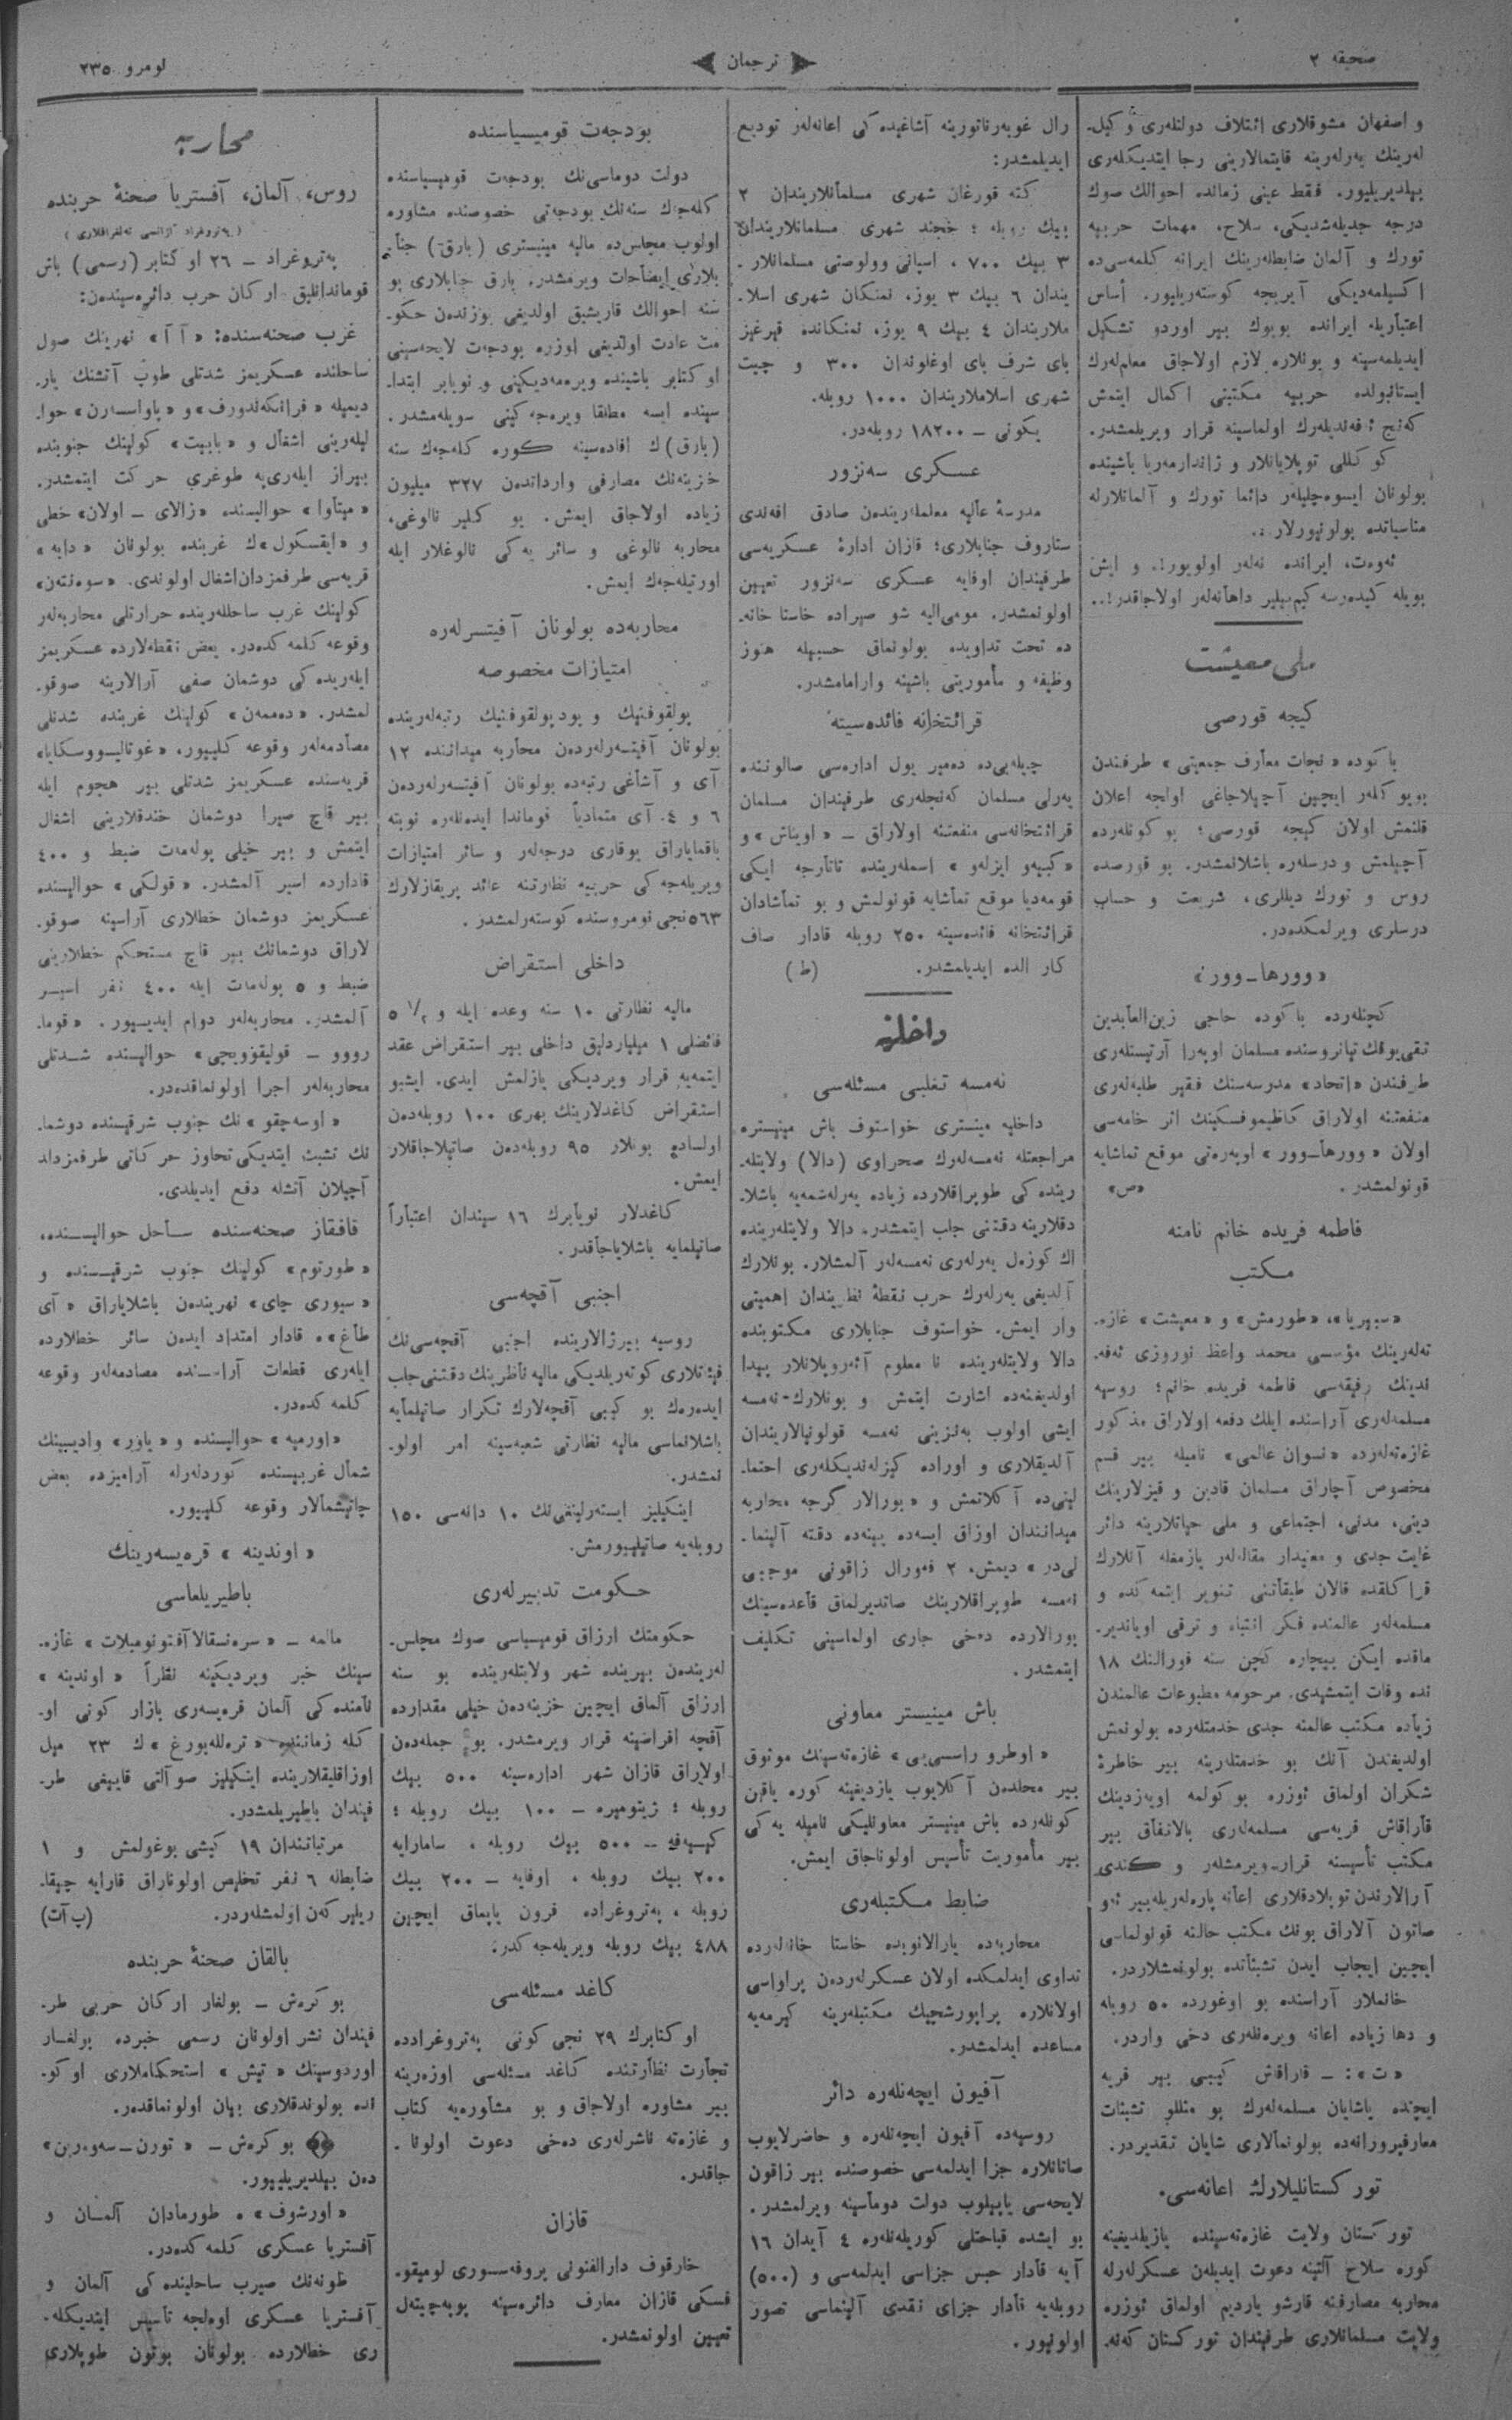 صحیفه ٢
ترجمان
نومرو ٢٣٥
و اصفهان مشوقلاری ائتلاف دولتلەری وکیل‌ـ
لەرینك یەرلەرینه قایتمالارینی رجا ایتدیکلەری
بیلدیریلیور. فقط عینی زمانده احوالك صوك
درجه جدیلەشدیکی، سلاح، مهمات حربیه
تورك و آلمان ضابطلەرینك ایرانه کلمەسی‌ده
اکسیلمەدیکی آیریجه کوستەریلیور. أساس
اعتباریله ایرانده بویوك بیر اوردو تشکیل
ایدیلمەسینه و بونلاره لازم اولاجاق معلم‌لەرك
ایستانبولده حربیه مکتبنی اکمال ایتمش
کەنج ئەفندیلەرك اولماسینه قرار ویریلمشدر.
کوکللی توپلایانلار و ژاندارمەریا باشینده
بولونان ایسوەچلیلەر دائما تورك و آلمانلارله
مناسباتده بولونیورلار..
ئەوەت، ایرانده نەلەر اولویور!. و ایش
بویله کیدەرسه کیم‌بیلیر داهانەلەر اولاجاقدر!..
ملی معیشت
کیجه قورصی
باکوده «نجات معارف جمعیتی» طرفندن
بویوکلەر ایچین آچیلاجاغی اولجه اعلان
قلنمش اولان کیجه قورصی؛ بو کونلەرده
آچیلمش و درسلەره باشلانمشدر. بو قورصده
روس و تورك دیللری، شریعت و حساب
درسلری ویرلمکده‌در.
«وورها-وور»
کچنلەرده باکوده حاجی زین‌العابدین
تقی‌یوفك تیاتروسنده مسلمان اوپەرا آرتیستلەری
طرفندن «اتحاد» مدرسەسنك فقیر طلبەلەری
منفعتنه اولاراق کاظیموفسکینك اثر خامەسی
اولان «وورها-وور» اوپەرەتی موقع تماشایه
قونولمشدر. «ص»
فاطمه فریده خانم نامنه
مکتب
«سیبریا»، «طورمش» و «معیشت» غازه‌ـ
تەلەرینك مؤسسی محمد واعظ نوروزی ئەفه‌ـ
ندینك رفیقەسی فاطمه فریده خانم؛ روسیه
مسلمەلەری آراسنده ایلك دفعه اولاراق مذکور
غازەتەلەرده «نسوان عالمی» نامیله بیر قسم
مخصوص آچاراق مسلمان قادین و قیزلارینك
دینی، مدنی، اجتماعی و ملی حیاتلارینه دائر
غایت جدی و مفیدار مقالەلەر یازمغله آنلارك
قراکلقده قالان طبقاتنی تنویر ایتمەکده و
مسلمەلەر عالمنده فکر انتباه و ترقی اویاندیر‌ـ
ماقده ایکن بیچاره کچن سنه فورالنك ١٨
نده وفات ایتمشیدی. مرحومه مطبوعات عالمندن
زیاده مکتب عالمنه جدی خدمتلەرده بولونمش
اولدیغندن آنك بو خدمتلەرینه بیر خاطرۀ
شکران اولماق ئوزره بوکولمه اویەزدینك
قاراقاش قریەسی مسلمەلەری بالاتفاق بیر
مکتب تأسیسنه قرار-ویرمشلەر و کندی
آرالارندن توپلادقلاری اعانه پارەلەریله بیر ئەو
صاتون آلاراق بونك مکتب حالنه قونولماسی
ایچین ایجاب ایدن تشبثاتده بولونمشلاردر.
خانملار آراسنده بو اوغورده ٥٠ روبله
و دها زیاده اعانه ویرەنلەری دخی واردر.
«ت»: ــ قاراقاش کیبی بیر قریه
ایچنده یاشایان مسلمەلەرك بو مثللو تشبثات
معارفپرورانەده بولونمالاری شایان تقدیردر.
تورکستانلیلارك اعانەسی.
تورکستان ولایت غازەتەسینده یازیلدیغینه
کوره سلاح آلتینه دعوت ایدیلەن عسکرلەرله
محاربه مصارفنه قارشو یاردیم اولماق ئوزره
ولایت مسلمانلاری طرفیندان تورکستان کەنه‌ـ
رال غوبەرناتورینه آشاغیده‌کی اعانەلەر تودیع
ایدیلمشدر:
کته قورغان شهری مسلمانلاریندان ٢
بیك روبله؛ خجند شهری مسلمانلاریندان
٣ بیك ٧٠٠، اسپانی وولوصتی مسلمانلار‌ـ
یندان ٦ بیك ٣ یوز، نمنکان شهری اسلا‌ـ
ملاریندان ٤ بیك ٩ یوز، نمنکانده قیرغیز
بای شرف بای اوغلوندان ٣٠٠ و چیت
شهری اسلاملاریندان ١٠٠٠ روبله.
یکونی ــ ١٨٢٠٠ روبلەدر.
عسکری سەنزور
مدرسۀ عالیه معلملەریندەن صادق افەندی
ستاروف جنابلاری؛ قازان ادارۀ عسکریەسی
طرفیندان اوفایه عسکری سەنزور تعیین
اولونمشدر. مومی‌الیه شو صیراده خاستا خانه‌ـ
ده تحت تداویده بولونماق حسبیله هنوز
وظیفه و مأموریتی باشینه وارامامشدر.
قرائتخانه فائدەسینه
چیلەبی‌ده دەمیر یول ادارەسی صالوننده
یەرلی مسلمان کەنجلەری طرفیندان مسلمان
قرائتخانەسی منفعتنه اولاراق ــ «اویناش» و
«کییەو ایزلەو» اسملەرینده تاتارجه ایکی
قومەدیا موقع تماشایه قونولمش و بو تماشادان
قرائتخانه فائدەسینه ٢٥٠ روبله قادار صاف
کار الده ایدیلمشدر. (ط)
داخلیه
نەمسه تغلبی مسئلەسی
داخلیه مینستری خواستوف باش مینیستره
مراجعتله نەمسەلەرك صحراوی (دالا) ولایتله‌ـ
رینده‌کی طوپراقلارده زیاده یەرلەشمەیه باشلا‌ـ
دقلارینه دقتنی جلب ایتمشدر. دالا ولایتلەرینده
اك کوزەل یەرلەری نەمسەلەر آلمشلار. بونلارك
آلدیغی یەرلەرك حرب نقطۀ نظریندان اهمیتی
وار ایمش. خواستوف جنابلاری مکتوبنده
دالا ولایتلەرینده نا معلوم آئەروپلانلار پیدا
اولدیغنده اشارت ایتمش و بونلارك-نەمسه
ایشی اولوب بەنزینی نەمسه قولونیالاریندان
آلدیقلاری و اوراده کیزلەندیکلەری احتما‌ـ
لینی‌ده آکلاتمش و «بورالار گرچه محاربه
میداننندان اوزاق ایسەده یینەده دقته آلینما‌ـ
لی‌در» دیمش. ٢ فەورال زاقونی موجبی
نەمسه طوپراقلارینك صاتدیرلماق قاعدەسینك
بورالارده دەخی جاری اولماسینی تکلیف
ایتمشدر.
باش مینیستر معاونی
«اوطرو راسسیی» غازەتەسینك موثوق
بیر محلدەن آکلایوب یازدیغینه کوره یاقین
کونلەرده باش مینیستر معاونلیکی نامیله یەکی
بیر مأموریت تأسیس اولوناجاق ایمش.
ضابط مکتبلەری
محاربەده یارالانوبده خاستا خانەلەرده
تداوی ایدلمکده اولان عسکرلەردەن پراواسی
اولانلاره پراپورشچیك مکتبلەرینه کیرمەیه
مساعده ایدلمشدر.
آفیون ایچەنلەره دائر
روسیەده آفیون ایچەنلەره و حاضرلایوب
صاتانلاره جزا ایدلمەسی خصوصنده بیر زاقون
لایحەسی یاپیلوب دولت دوماسینه ویرلمشدر.
بو ایشده قباحتلی کوریلەنلەره ٤ آیدان ١٦
آیه قادار حبس جزاسی ایدلمەسی و (٥٠٠)
روبلەیه قادار جزای نقدی آلینماسی تصور
اولونیور.
بودجەت قومیسیاسنده
دولت دوماسی‌نك بودجەت قومیسیاسنده
کلەجك سنەنك بودجەتی خصوصنده مشاوره
اولوب مجلس‌ده مالیه مینیستری (بارق) جنا‌ـ
بلاری ایضاحات ویرمشدر. بارق جنابلاری بو
سنه احوالك قاریشیق اولدیغی یوزندەن حکو‌ـ
مت عادت اولدیغی اوزره بودجەت لایحەسینی
اوکتابر باشینده ویرەمەدیکینی و نویابر ابتدا‌ـ
سینده ایسه مطلقا ویرەجەکینی سویلەمشدر.
(بارق)ك افادەسینه کوره کلەجەك سنه
خزینەنك مصارفی وارداتدەن ٣٢٧ میلیون
زیاده اولاجاق ایمش. بو کلیر نالوغی،
محاربه نالوغی و سائر یەکی نالوغلار ایله
اورتیلەجەك ایمش.
محاربەده بولونان آفیتسرلەره
امتیازات مخصوصه
پولقوفنیك و پودپولقوفنیك رتبەلەرینده
بولونان آفیتسەرلەردەن محاربه میداننده ١٢
آی و آشاغی رتبەده بولونان آفیتسەرلەردەن
٦ و ٤ آی متمادیاً قوماندا ایدەنلەره نوبته
باقمایاراق یوقاری درجەلەر و سائر امتیازات
ویریلەجەکی حربیه نظارتنه عائد پریقازلارك
٥٦٣نجی نومروسنده کوستەرلمشدر.
داخلی استقراض
مالیه نظارتی ١٠ سنه وعده ایله و ٥ ١/٢
فائضلی ١ میلیاردلیق داخلی بیر استقراض عقد
ایتمەیه قرار ویردیکی یازلمش ایدی. ایشبو
استقراض کاغدلارینك بهری ١٠٠ روبلەدەن
اولسەده بونلار ٩٥ روبلەدەن صاتیلاجاقلار
ایمش.
کاغدلار نویابرك ١٦ سیندان اعتباراً
صاتیلمایه باشلایاجاقدر.
اجنبی آقچەسی
روسیه بیرژالارینده اجنبی آقچەسی‌نك
فیئاتلاری کوتەریلدیکی مالیه ناظرینك دقتنی جلب
ایدەرەك بو کیبی آقچەلارك تکرار صاتیلمایه
باشلانماسی مالیه نظارتی شعبەسینه امر اولو‌ـ
نمشدر.
اینکیلیز ایستەرلینغی‌نك ١٠ دانەسی ١٥٠
روبلەیه صاتیلیورمش.
حکومت تدبیرلەری
حکومتك ارزاق قومیسیاسی صوك مجلس‌ـ
لەریندەن بیرینده شهر ولایتلەرینده بو سنه
ارزاق آلماق ایچین خزینەدەن خیلی مقدارده
آقچه اقراضینه قرار ویرمشدر. بو جملەدەن
اولاراق قازان شهر ادارەسینه ٥٠٠ بیك
روبله؛ ژیتومیره ــ ١٠٠ بیك روبله؛
کییەفه ــ ٥٠٠ بیك روبله، سامارایه
٢٠٠ بیك روبله، اوفایه ــ ٢٠٠ بیك
روبله، پەتروغراده قرون یاپماق ایچین
٤٨٨ بیك روبله ویریلەجەکدر.
کاغد مسئلەسی
اوکتابرك ٢٩ نجی کونی پەتروغرادده
تجارت نظارتنده کاغد مسئلەسی اوزەرینه
بیر مشاوره اولاجاق و بو مشاورەیه کتاب
و غازەته ناشرلەری دەخی دعوت اولونا‌ـ
جاقدر.
قازان
خارقوف دارالفنونی پروفەسسوری لومیقو‌ـ
فسکی قازان معارف دائرەسینه پوپەچیتەل
تعیین اولونمشدر.
محاربه
روس، آلمان، آفستریا صحنۀ حربنده
(پەتروغراد آژانسی تەلغرافلاری)
پەتروغراد ــ ٢٦ اوکتابر (رسمی) باش
قوماندانلیق ارکان حرب دائرەسیندەن:
غرب صحنەسنده: «آآ» نهرینك صول
ساحلنده عسکریمز شدتلی طوپ آتشنك یار‌ـ
دیمیله «فرانکەندورف» و «یاواسەرن» حوا‌ـ
لیلەرینی اشغال و «بابیت» کولینك جنوبنده
بیراز ایلەری‌یه طوغری حرکت ایتمشدر.
«میتاوا» حوالیسنده «زالای ــ اولان» خطی
و «ایقسکول»ك غربنده بولونان «دابه»
قریەسی طرفمزدان اشغال اولوندی. «سوەنتەن»
کولینك غرب ساحللەرینده حرارتلی محاربەلەر
وقوعه کلمەکدەدر. بعض نقطەلارده عسکریمز
ایلەریده‌کی دوشمان صفی آرالارینه صوقو‌ـ
لمشدر. «دەممەن» کولینك غربنده شدتلی
مصادمەلەر وقوعه کلیور، «غوتالیسووسکایا»
قریەسنده عسکریمز شدتلی بیر هجوم ایله
بیر قاچ صیرا دوشمان خندقلارینی اشغال
ایتمش و بیر خیلی پولەمەت ضبط و ٤٠٠
قادارده اسیر آلمشدر. «قولکی» حوالیسنده
عسکریمز دوشمان خطلاری آراسینه صوقو‌ـ
لاراق دوشمانك بیر قاچ مستحکم خطلارینی
ضبط و ٥ پولەمەت ایله ٤٠٠ نفر اسیر
آلمشدر. محاربەلەر دوام ایدیسیور. «قوما‌ـ
رووو ــ قولیقوویچی» حوالیسنده شدتلی
محاربەلەر اجرا اولونماقدەدر.
«اوسەچقو» نك جنوب شرقیسنده دوشما‌ـ
نك تشبث ایتدیکی تجاوز حرکاتی طرفمزدان
آچیلان آتشله دفع ایدیلدی.
قافقاز صحنەسنده ساحل حوالیسنده،
«طورتوم» کولینك جنوب شرقیسنده و
«سیوری چای» نهریندەن باشلایاراق «آی
طاغ»ه قادار امتداد ایدەن سائر خطلارده
ایلەری قطعات آراسنده مصادمەلەر وقوعه
کلمەکدەدر.
«اورمیه» حوالیسنده و «یاوز» وادیسینك
شمال غربیسنده کوردلەرله آرامیزده بعض
چاتیشمالار وقوعه کلییور.
«اوندینه» قرەیسەرینك
باطیریلماسی
مالمه ــ «سرەنسقالا آفتونومیلات» غازه‌ـ
سینك خبر ویردیکینه نظراً «اوندینه»
نامنده‌کی آلمان قرەیسەری بازار کونی او‌ـ
کله زماننده «ترەللەبورغ»ك ٢٣ میل
اوزاقلیقلارینده اینکیلیز صو آلتی قاییغی طر‌ـ
فیندان باطیریلمشدر.
مرتباتندان ١٩ کیشی بوغولمش و ١
ضابطله ٦ نفر تخلیص اولوناراق قارایه چیقا‌ـ
ریلیر کەن اولمشلەردر. (پ آت)
بالقان صحنۀ حربنده
بوکرەش ــ بولغار ارکان حربی طر‌ـ
فیندان نشر اولونان رسمی خبرده بولغار
اوردوسینك «نیش» استحکاملاری اوکو‌ـ
نده بولوندقلاری بیان اولونماقدەدر.
بوکرەش ــ «تورن-سەوەرین»
دەن بیلدیریلییور.
«اورشوف»ه طورمادان آلمان و
آفستریا عسکری کلمەکدەدر.
طونەنك صیرب ساحلینده‌کی آلمان و
آفستریا عسکری اوەلجه تأسیس ایتدیکله‌ـ
ری خطلارده بولونان بوتون طوپلاری